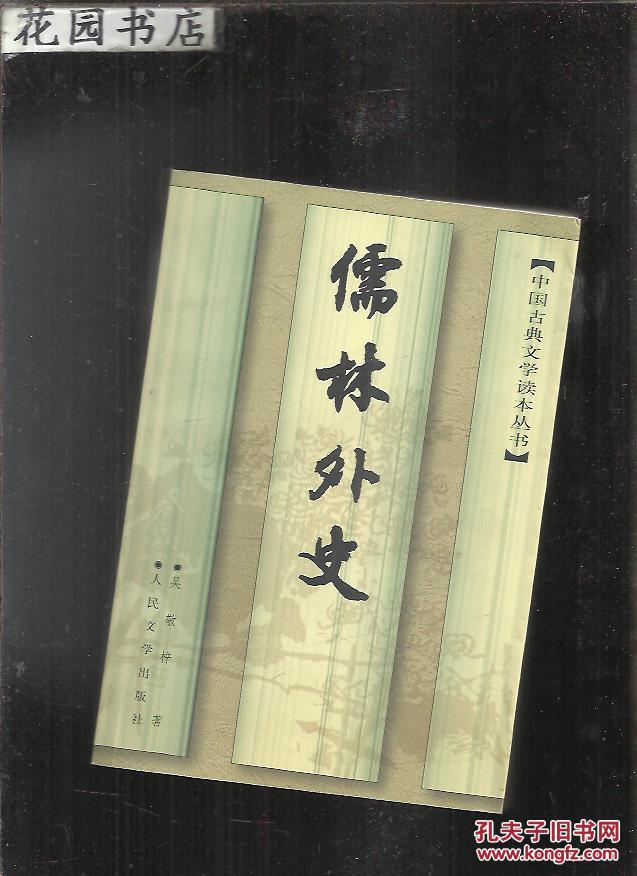 花园书店
【中国古典文学读本丛书】
儒林外史
◉吴敬梓 著
◉人民文学出版社
孔夫子旧书网
www.kongfz.com